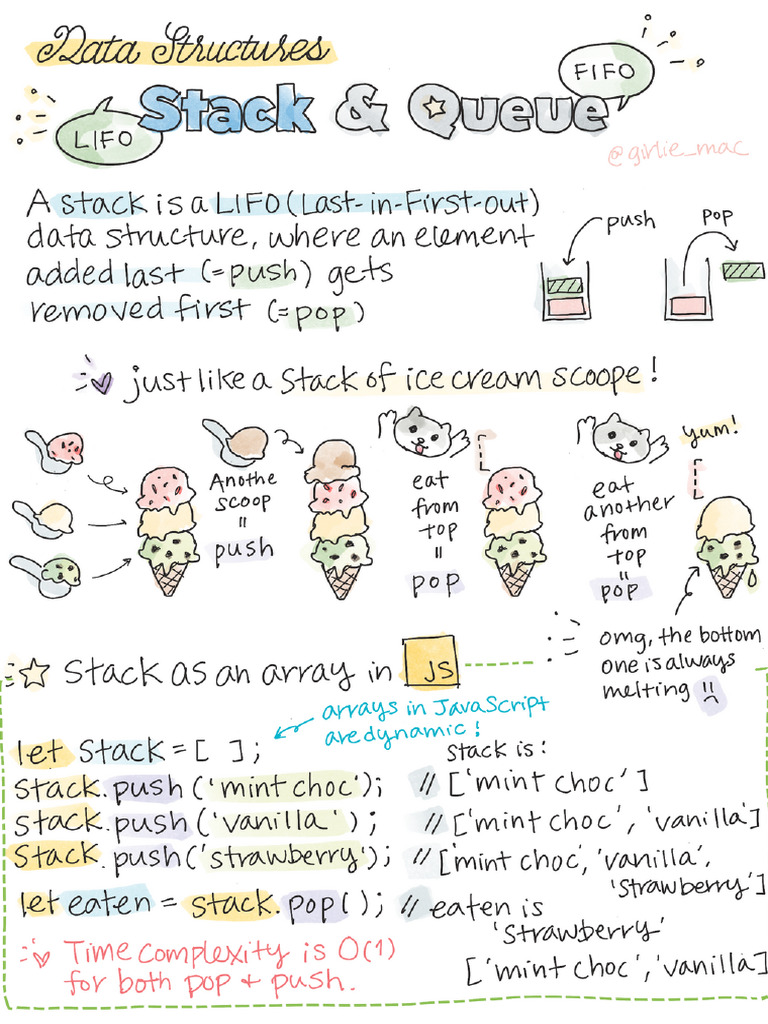 Data Structures
FIFO
LIFO
Stack & Queue
@girlie_mac
A stack is a LIFO (Last-in-First-out)
data structure, where an element
added last (=push) gets
removed first (=pop)
push
pop
just like a stack of ice cream scoope!
Anothe
scoop
=
push
eat
from
top
=
pop
eat
another
from
top
=
pop
yum!
omg, the bottom
one is always
melting
Stack as an array in JS
arrays in JavaScript
are dynamic!
let stack = [ ];
stack is:
stack.push('mint choc'); // ['mint choc']
stack.push('vanilla'); // ['mint choc', 'vanilla']
stack.push('strawberry'); // ['mint choc', 'vanilla',
'strawberry']
let eaten = stack.pop(); // eaten is
'strawberry'
['mint choc', 'vanilla]
Time complexity is O(1)
for both pop + push.